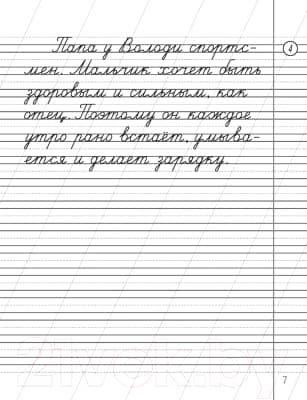 Папа у Володи спортс-
мен. Мальчик хочет быть
здоровым и сильным, как
отец. Поэтому он каждое
утро рано встаёт, умыва-
ется и делает зарядку.
4
7
21vek.by